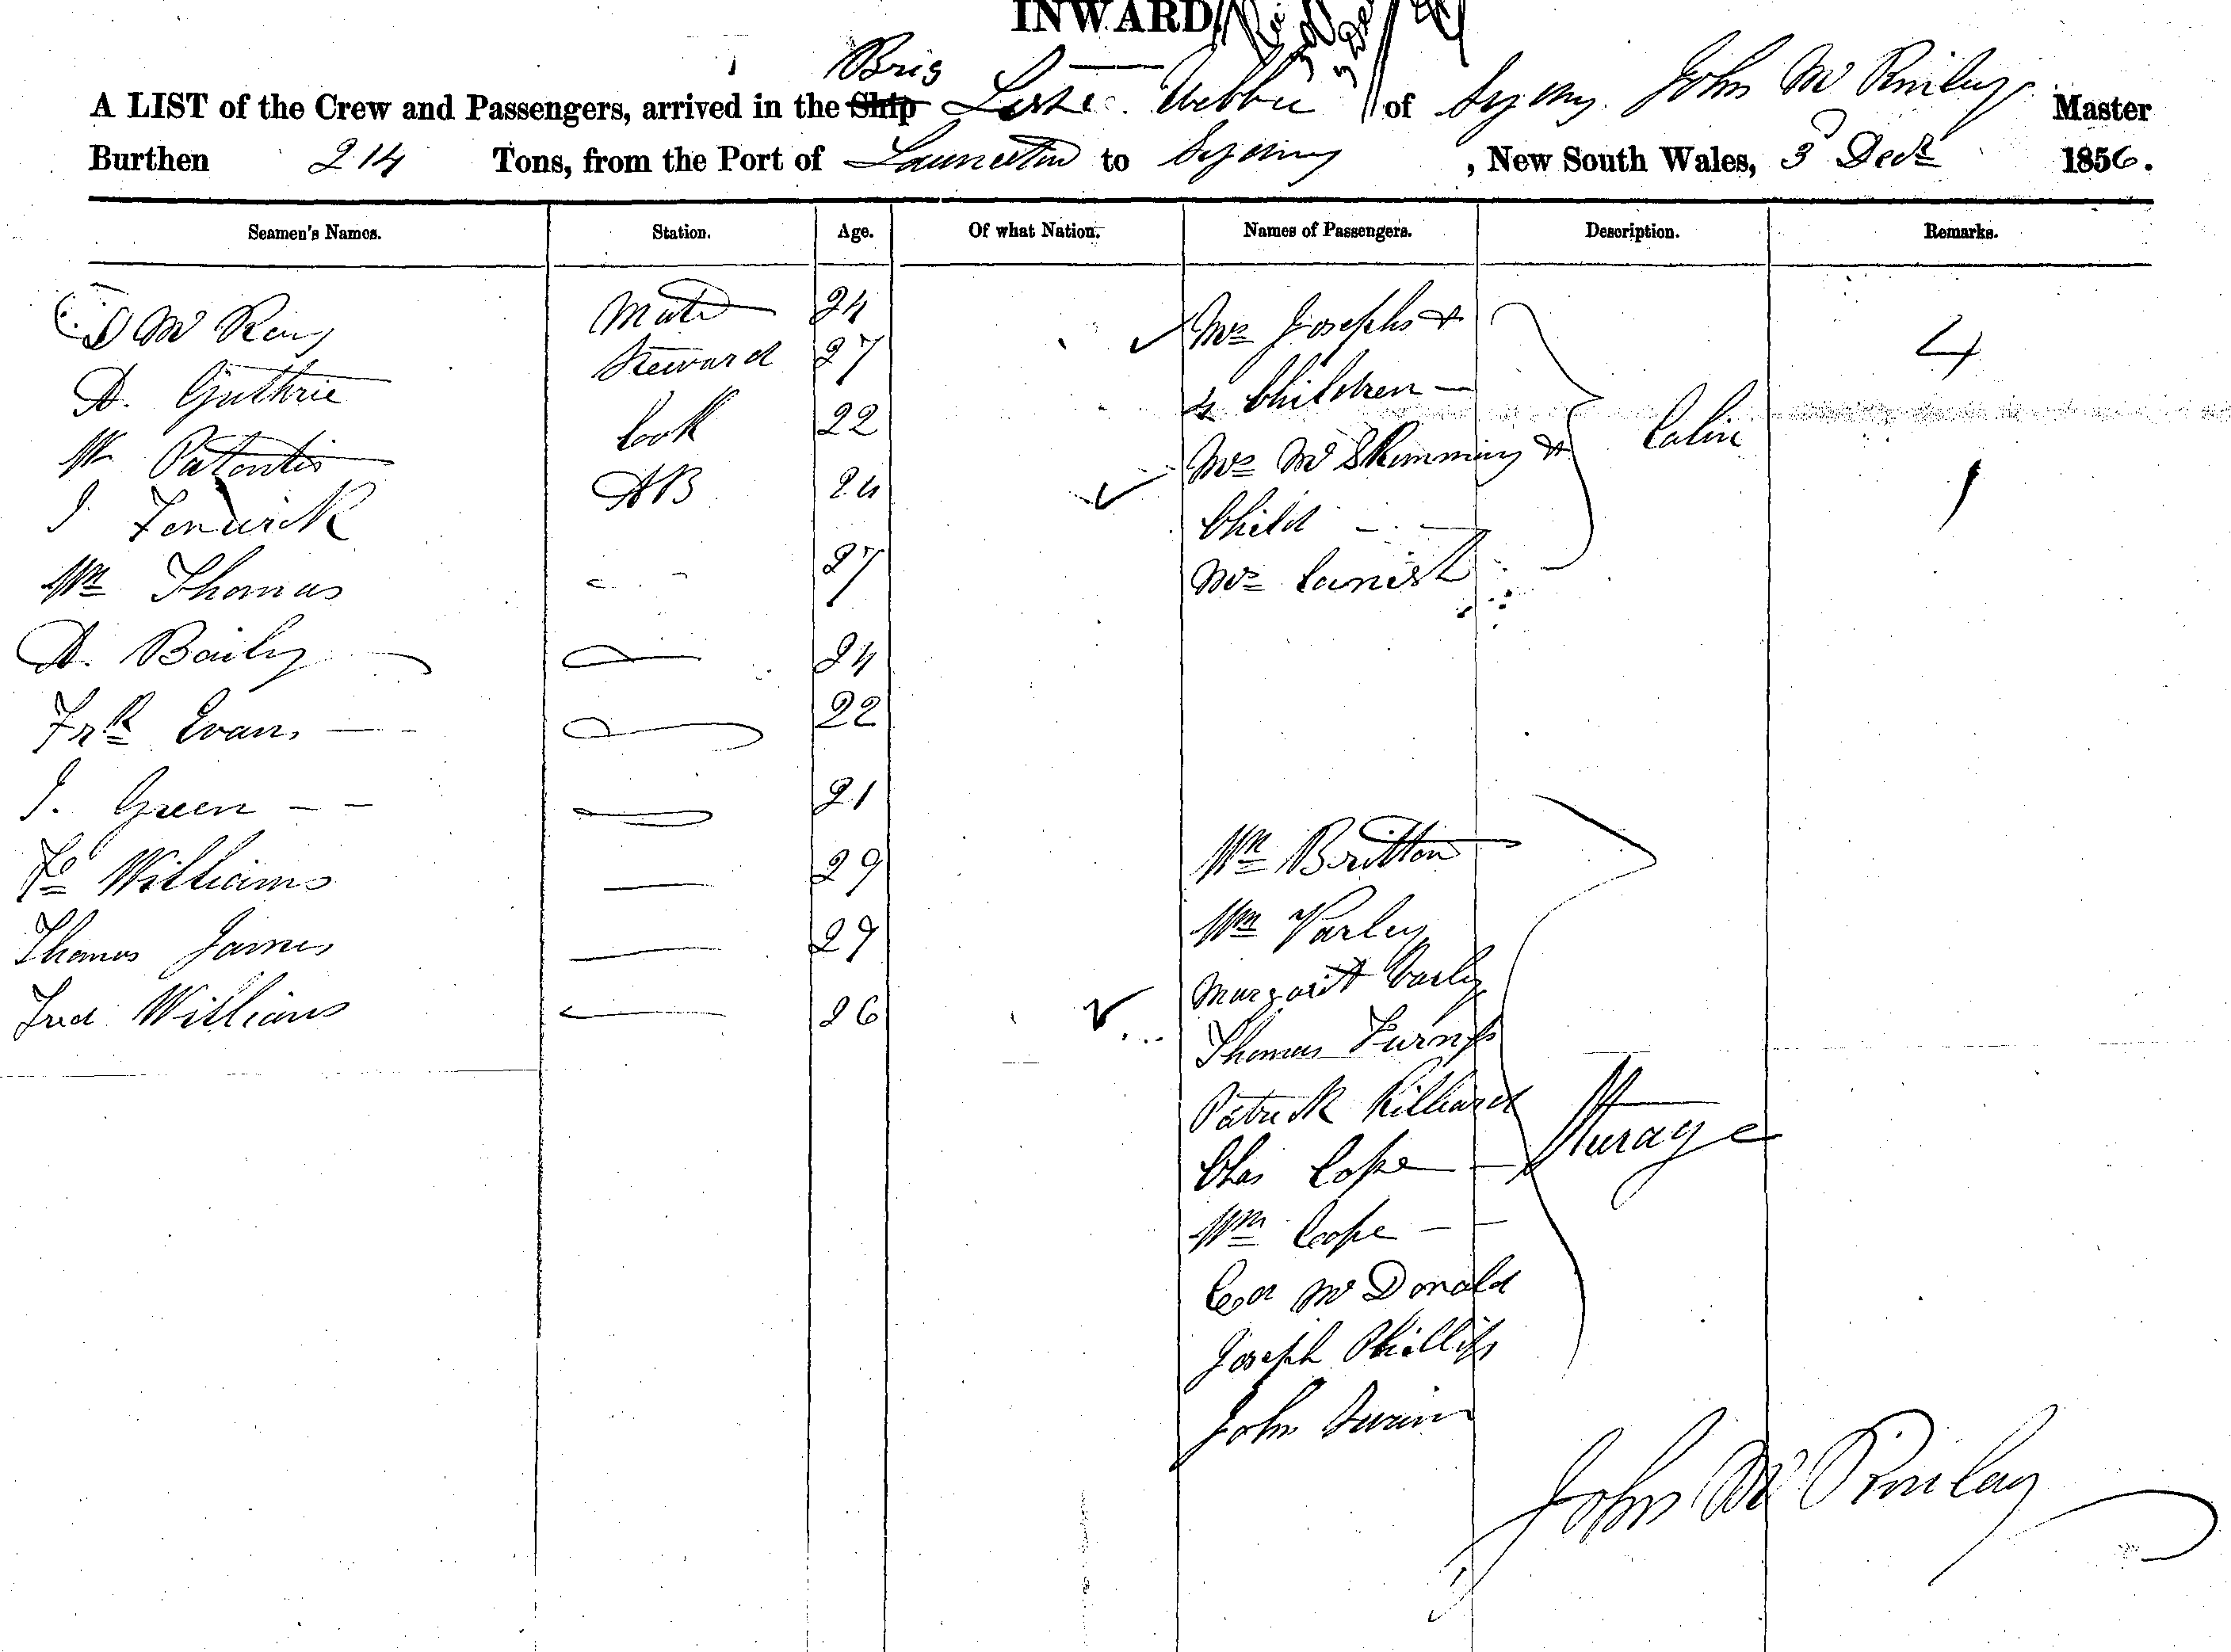 INWARD
Brig
A LIST of the Crew and Passengers, arrived in the Ship of Sydney John Master
Burthen 214 Tons, from the Port of Launceston to Sydney, New South Wales, 3 Decr 1856.
Seamen's Names. Station. Age. Of what Nation. Names of Passengers. Description. Remarks.
D Mc Mate 24 Mrs Josephs & 4
A. Guthrie Steward 27 4 Children —
Wm Cook 22 Mrs McSkimming & Cabin
J Fenwick AB 24 Child 1
Wm Thomas 27 Mrs
A. Baily 24
Frk Evans 22
J. Green 21
Williams 29 Wm Britton
Thomas James 29 Wm Varley
Fred Williams 26 Margaret Varley
Thomas Furness
Patrick Killiard
Chas Cope Steerage
Wm Cope
McDonald
Joseph Phillips
John
John